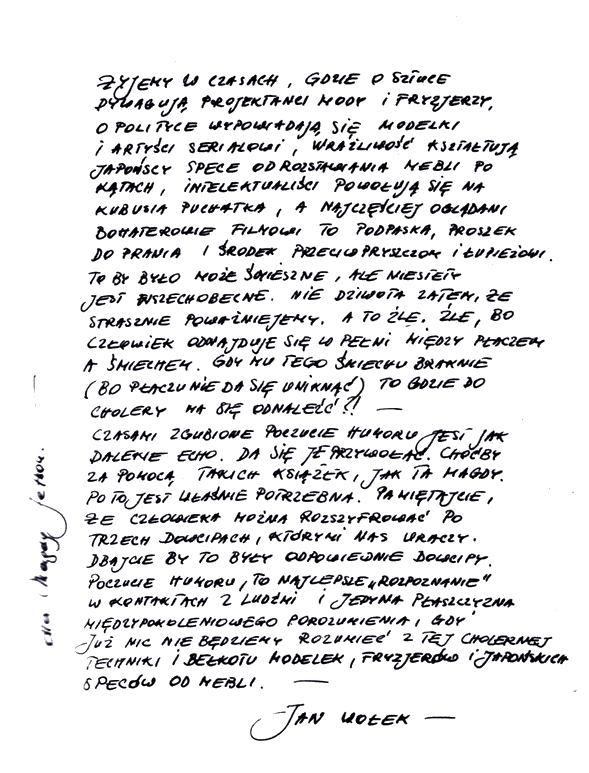 ŻYJEMY W CZASACH, GDZIE O SZTUCE
DYWAGUJĄ PROJEKTANCI MODY I FRYZJERZY,
O POLITYCE WYPOWIADAJĄ SIĘ MODELKI
I ARTYŚCI SERIALOWI, WRAŻLIWOŚĆ KSZTAŁTUJĄ
JAPOŃSCY SPECE OD ROZSTAWIANIA MEBLI PO
KĄTACH, INTELEKTUALIŚCI POWOŁUJĄ SIĘ NA
KUBUSIA PUCHATKA, A NAJCZĘŚCIEJ OGLĄDANI
BOHATEROWIE FILMOWI TO PODPASKA, PROSZEK
DO PRANIA I ŚRODEK PRZECIW PRYSZCZOM I ŁUPIEŻOWI.
TO BY BYŁO MOŻE ŚMIESZNE, ALE NIESTETY
JEST WSZECHOBECNE. NIE DZIWOTA ZATEM, ŻE
STRASZNIE POWAŻNIEJEMY. A TO ŹLE. ŹLE, BO
CZŁOWIEK ODNAJDUJE SIĘ W PEŁNI MIĘDZY PŁACZEM
A ŚMIECHEM. GDY MU TEGO ŚMIECHU BRAKNIE
(BO PŁACZU NIE DA SIĘ UNIKNĄĆ) TO GDZIE DO
CHOLERY MA SIĘ ODNALEŹĆ?! —
CZASAMI ZGUBIONE POCZUCIE HUMORU JEST JAK
DALEKIE ECHO. DA SIĘ JE PRZYWOŁAĆ. CHOĆBY
ZA POMOCĄ TAKICH KSIĄŻEK, JAK TA MAGDY.
PO TO JEST WŁAŚNIE POTRZEBNA. PAMIĘTAJCIE,
ŻE CZŁOWIEKA MOŻNA ROZSZYFROWAĆ PO
TRZECH DOWCIPACH, KTÓRYMI NAS URACZY.
DBAJCIE BY TO BYŁY ODPOWIEDNIE DOWCIPY.
POCZUCIE HUMORU, TO NAJLEPSZE „ROZPOZNANIE"
W KONTAKTACH Z LUDŹMI I JEDYNA PŁASZCZYZNA
MIĘDZYPOKOLENIOWEGO POROZUMIENIA, GDY
JUŻ NIC NIE BĘDZIEMY ROZUMIEĆ Z TEJ CHOLERNEJ
TECHNIKI I BEŁKOTU MODELEK, FRYZJERÓW I JAPOŃSKICH
SPECÓW OD MEBLI. —
JAN WOŁEK —